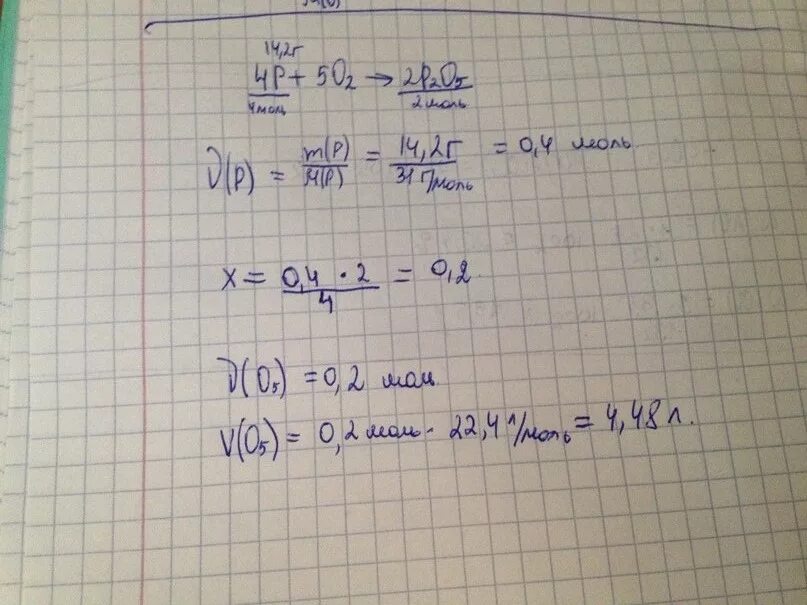 14,2г
4P + 5O₂ → 2P₂O₅
4моль 2моль
ν(P) = m(P)/M(P) = 14,2г/31г/моль = 0,4 моль
x = 0,4 · 2/4 = 0,2
ν(O₅) = 0,2 моль
V(O₅) = 0,2 моль · 22,4 л/моль = 4,48 л.